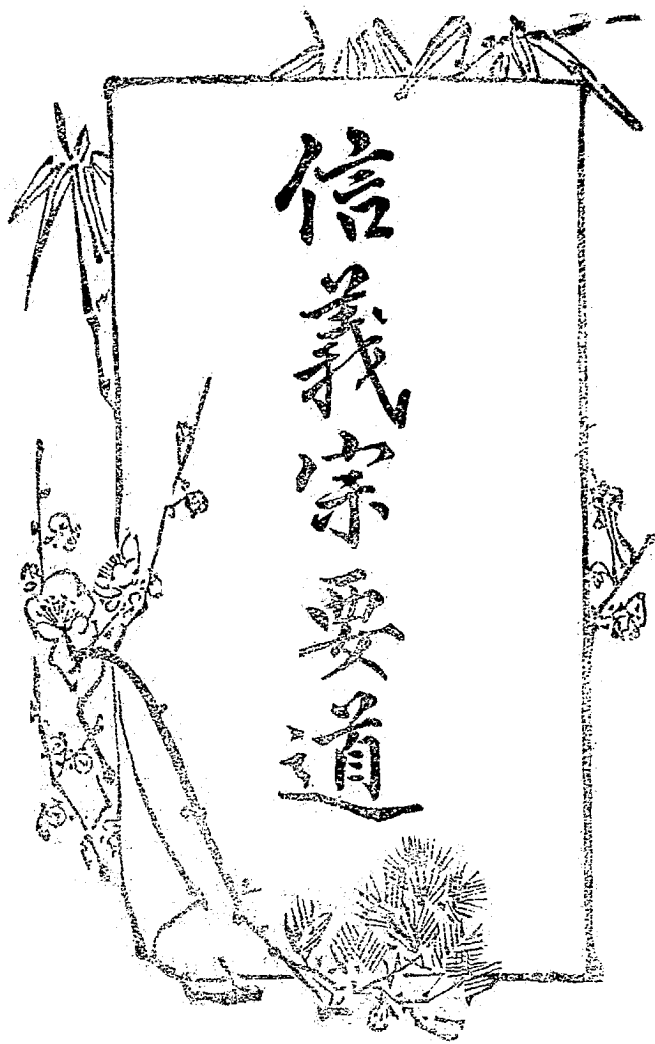 信義宗要道